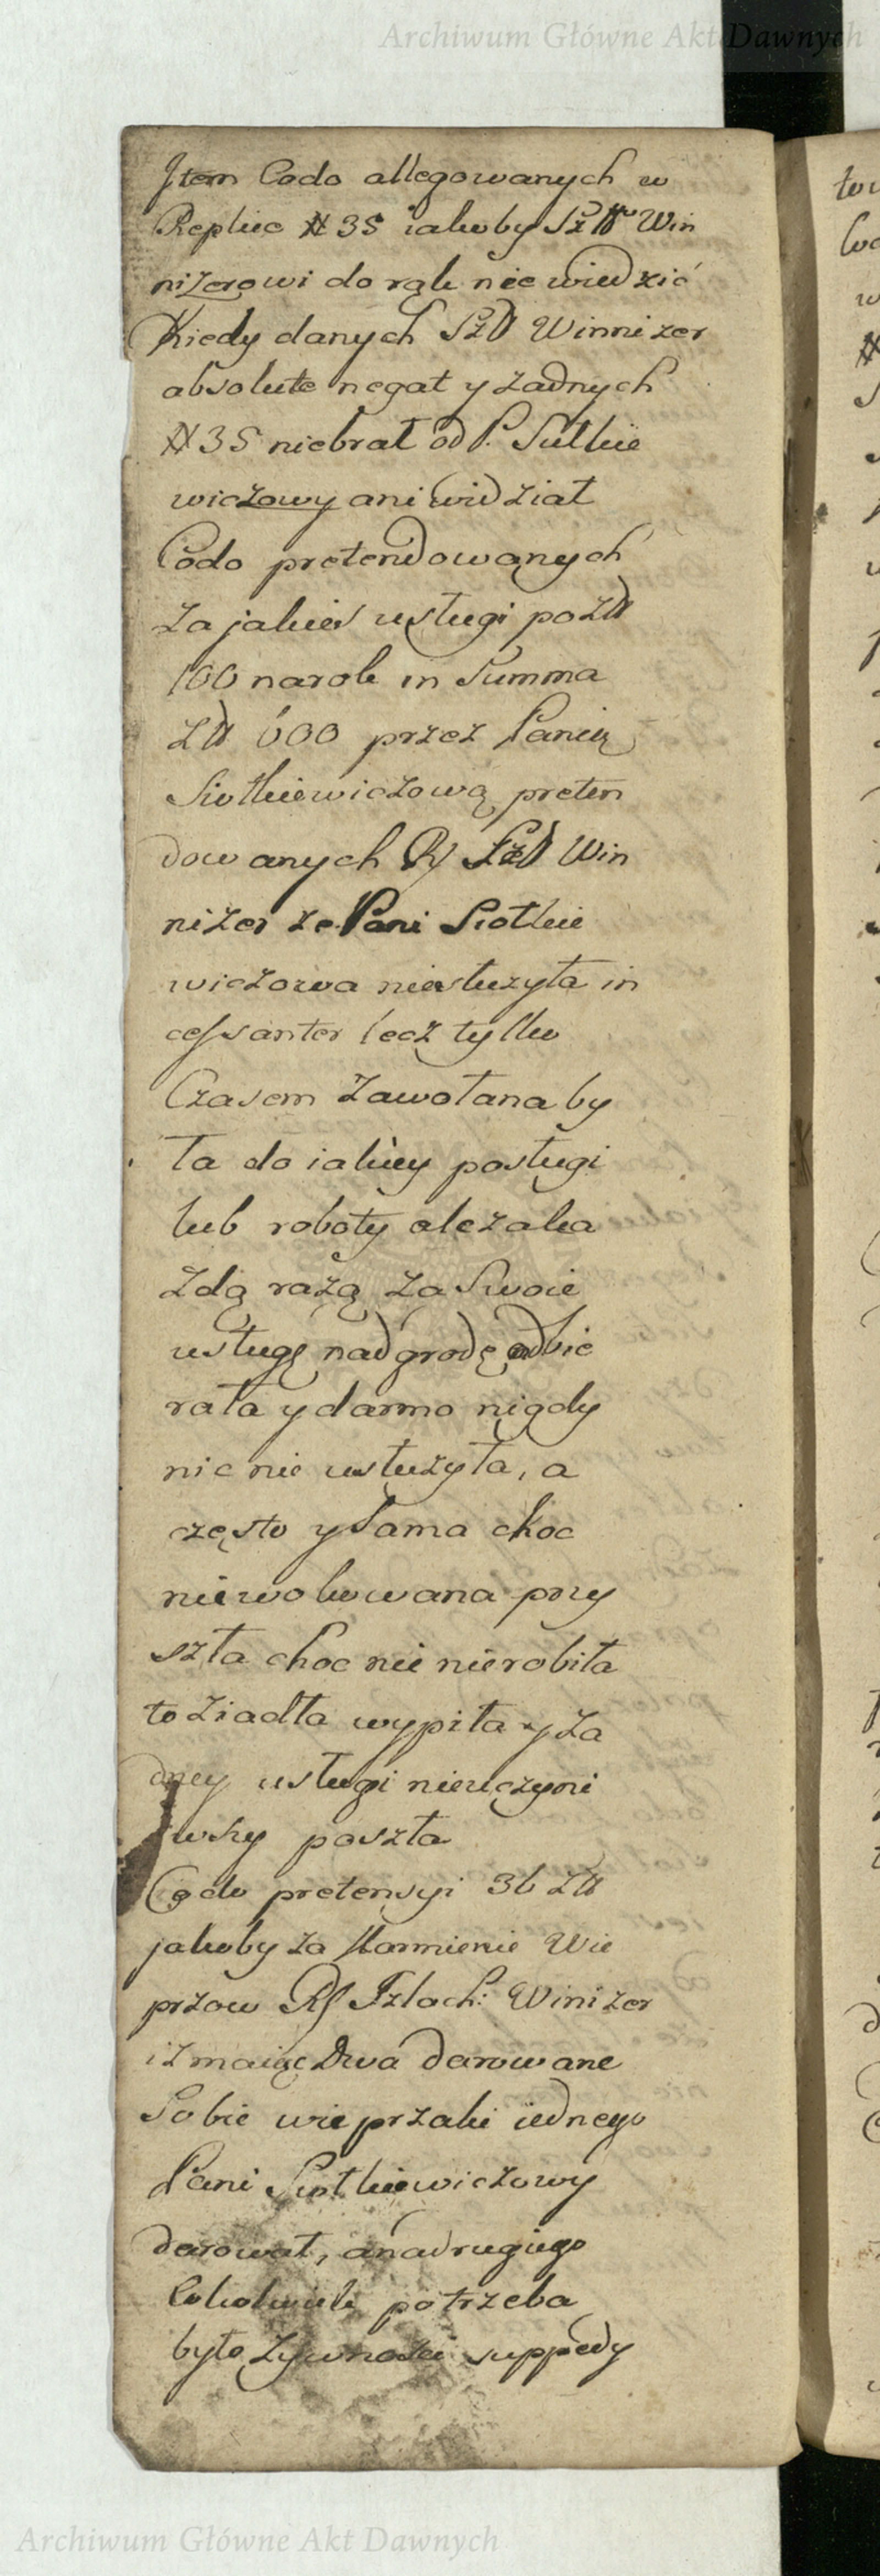 Archiwum Główne Akt Dawnych
Jtem Codo allegowanych w
Replice # 35 iakoby Win
nizerowi do rąk nie wiedzić
Kiedy danych Szl Winnizer
absolute negat y żadnych
# 35 niebrał od P. Siutkie
wiczowy ani widział
Codo pretendowanych
za jakies usługi po Zlł
100 na rok in Summa
Zlł 600 przez Panią
Siutkiewiczową preten
dowanych Rs Szl Win
nizer ze Pani Siotkie
wiczowa niesłużyła in
cessanter lecz tylko
Czasem zawołana by
ła do iakiey posługi
lub roboty ale zaka
żdą rażą za Swoie
usługę nadgrodę odbie
rała y darmo nigdy
nic nie usłużyła, a
często y Sama choc
niewokowana przy
szła choc nic nierobiła
to ziadła wypiła y ża
dney usługi nieuczyni
wszy poszła
Codo pretensyi 36 Zlł
jakoby za karmienie Wie
przow Rs Szlach: Winizer
iż maiąc Dwa darowane
Sobie wieprzaki iednego
Pani Siutkiewiczowy
darował, a na drugiego
Cokolwiek potrzeba
było żywnosci suppedy
Archiwum Główne Akt Dawnych